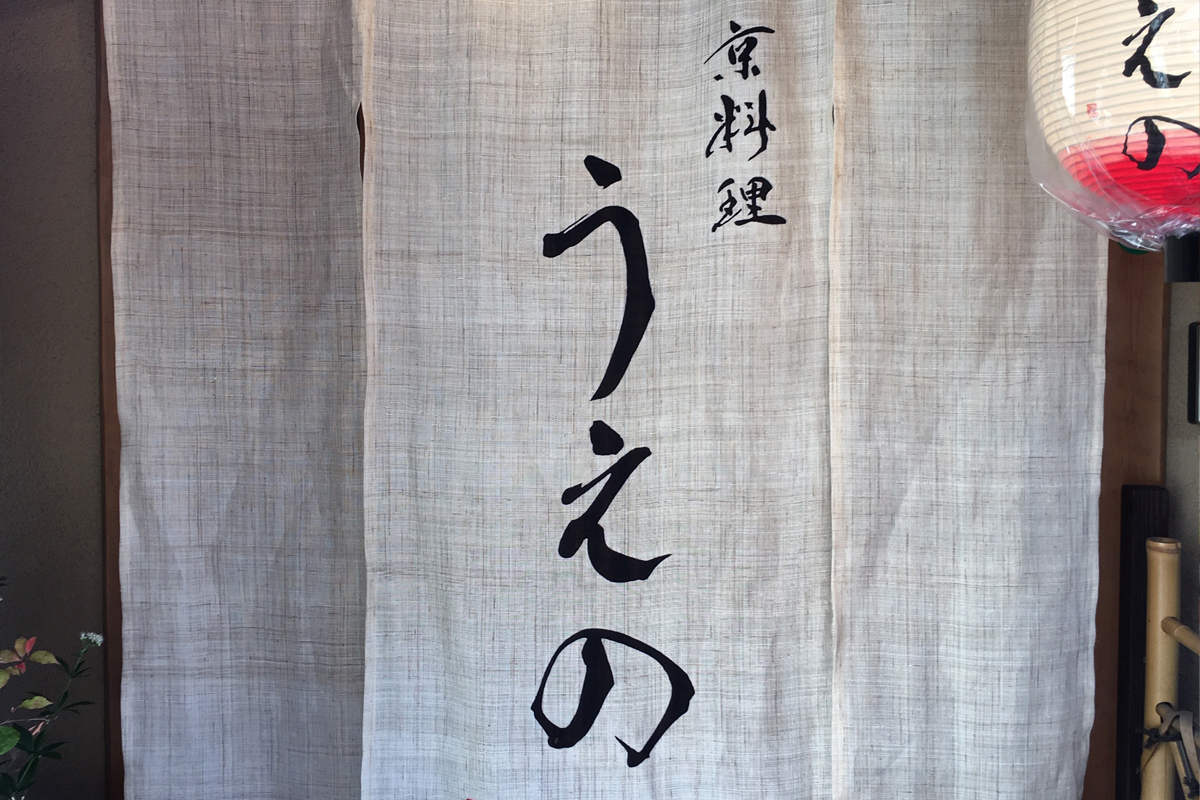 京料理
うえの
えの